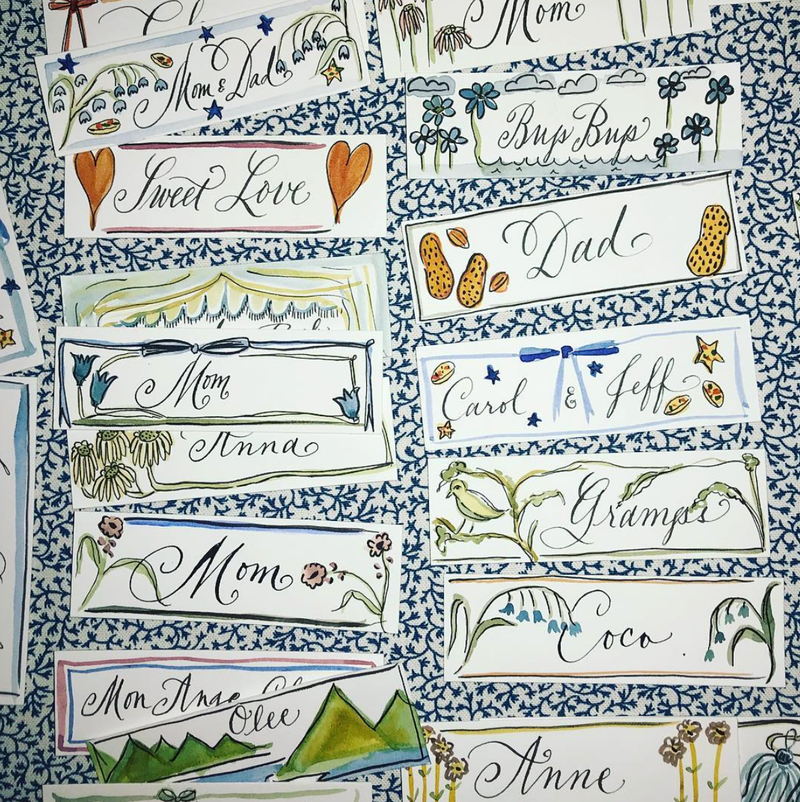 Mom
Mom & Dad
Bup Bup
Sweet Love
Dad
Mom
Carol & Jeff
Anna
Gramps
Mom
Coco
Mon Ange
Olee
Anne